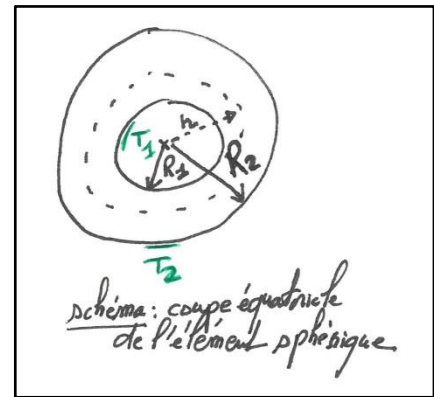 T1
r
R1
R2
T2
schéma: coupe équatoriale
de l'élément sphérique